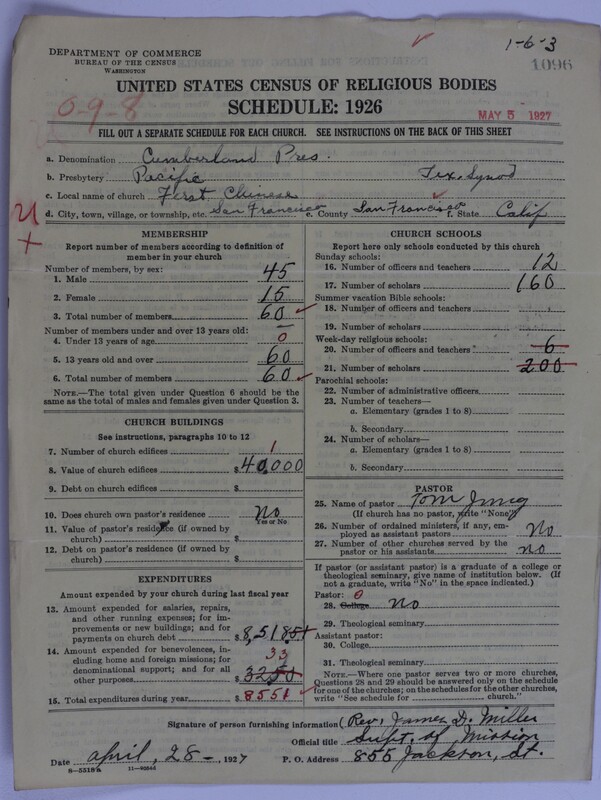 1-6-3
DEPARTMENT OF COMMERCE
BUREAU OF THE CENSUS
WASHINGTON
1096
UNITED STATES CENSUS OF RELIGIOUS BODIES
SCHEDULE: 1926
0-9-8
MAY 5 1927
FILL OUT A SEPARATE SCHEDULE FOR EACH CHURCH. SEE INSTRUCTIONS ON THE BACK OF THIS SHEET
a. Denomination Cumberland Pres.
b. Presbytery Pacific Tex. Synod
c. Local name of church First Chinese
d. City, town, village, or township, etc. San Francisco e. County San Francisco f. State Calif
U
MEMBERSHIP
Report number of members according to definition of
member in your church
Number of members, by sex:
1. Male 45
2. Female 15
3. Total number of members 60
Number of members under and over 13 years old:
4. Under 13 years of age 0
5. 13 years old and over 60
6. Total number of members 60
NOTE.—The total given under Question 6 should be
same as the total of males and females given under Question 3.
CHURCH BUILDINGS
See instructions, paragraphs 10 to 12
7. Number of church edifices 1
8. Value of church edifices $ 40,000
9. Debt on church edifices $
10. Does church own pastor's residence No
Yes or No
11. Value of pastor's residence (if owned by
church) $
12. Debt on pastor's residence (if owned by
church) $
EXPENDITURES
Amount expended by your church during last fiscal year
13. Amount expended for salaries, repairs,
and other running expenses; for im-
provements or new buildings; and for
payments on church debt $ 8,518
14. Amount expended for benevolences, 33
including home and foreign missions; for
denominational support; and for all
other purposes $ 3250
15. Total expenditures during year $ 8551
CHURCH SCHOOLS
Report here only schools conducted by this church
Sunday schools:
16. Number of officers and teachers 12
17. Number of scholars 160
Summer vacation Bible schools:
18. Number of officers and teachers
19. Number of scholars
Week-day religious schools:
20. Number of officers and teachers 6
21. Number of scholars 200
Parochial schools:
22. Number of administrative officers
23. Number of teachers—
a. Elementary (grades 1 to 8)
b. Secondary
24. Number of scholars—
a. Elementary (grades 1 to 8)
b. Secondary
PASTOR
25. Name of pastor Tom
(If church has no pastor, write "None")
26. Number of ordained ministers, if any, em-
ployed as assistant pastors No
27. Number of other churches served by the
pastor or his assistants No
If pastor (or assistant pastor) is a graduate of a college or
theological seminary, give name of institution below. (If
not a graduate, write "No" in the space indicated.)
Pastor: 0
28. College No
29. Theological seminary
Assistant pastor:
30. College
31. Theological seminary
NOTE.—Where one pastor serves two or more churches,
Questions 28 and 29 should be answered only on the schedule
for one of the churches; on the schedules for the other churches,
write "See schedule for church."
Signature of person furnishing information (Rev. James D. Miller
Official title Supt. of Mission
Date April, 28-, 1927 P. O. Address 855 Jackson, St.
8-5518 a